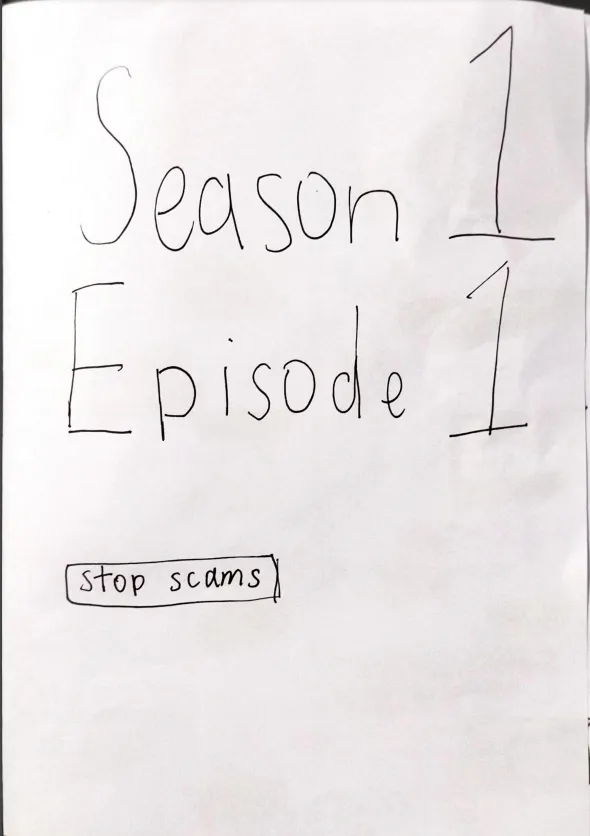 Season 1
Episode 1
stop scams